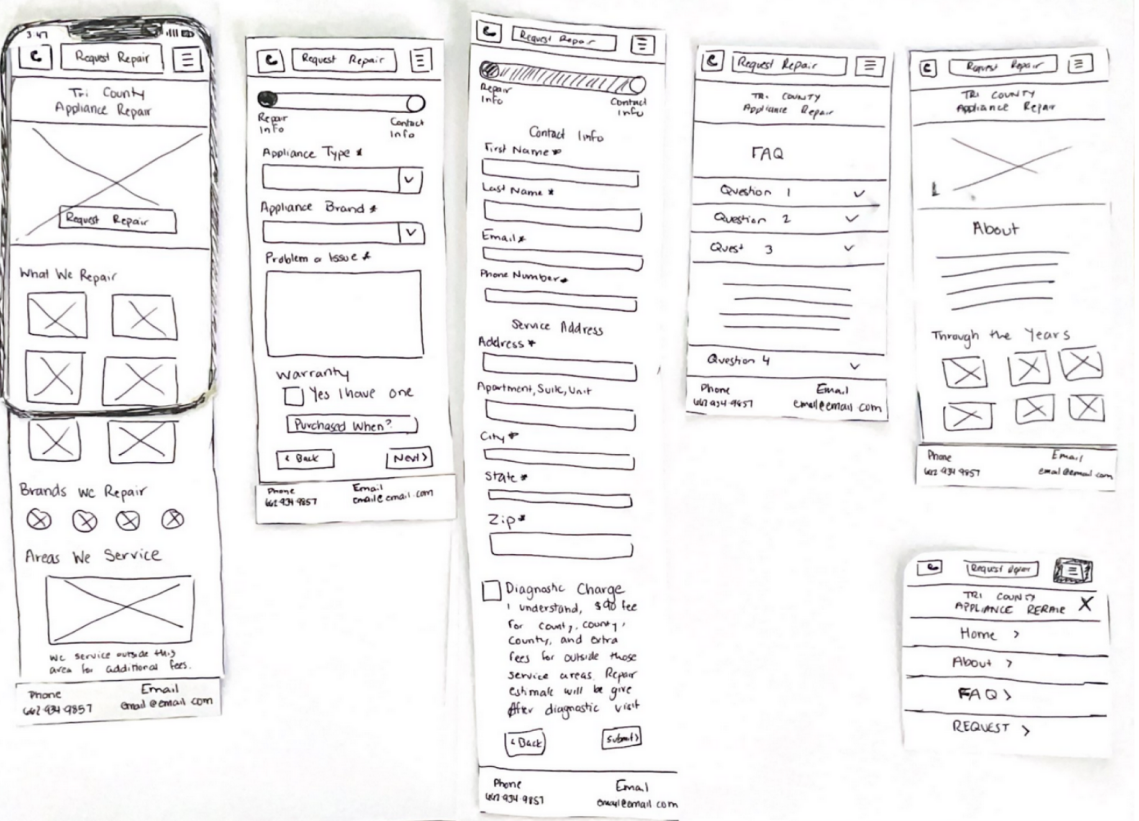 3:47
Request Repair
Tri County
Appliance Repair
Request Repair
What We Repair
Brands We Repair
Areas We Service
We service outside this
area for additional fees.
Phone
Email
email@email.com
Request Repair
Repair
Info
Contact
Info
Appliance Type *
Appliance Brand *
Problem or Issue *
Warranty
Yes I have one
Purchased When?
< Back
Next >
Phone
Email
email@email.com
Request Repair
Repair
Info
Contact
Info
Contact Info
First Name *
Last Name *
Email *
Phone Number *
Service Address
Address *
Apartment, Suite, Unit
City *
State *
Zip *
Diagnostic Charge
I understand, $90 fee
for county, county,
county, and extra
fees for outside those
service areas. Repair
estimate will be give
After diagnostic visit
< Back
Submit >
Phone
Email
email@email.com
Request Repair
TRI COUNTY
Appliance Repair
FAQ
Question 1
Question 2
Quest 3
Question 4
Phone
Email
email@email.com
Request Repair
TRI COUNTY
Appliance Repair
About
Through the Years
Phone
Email
email@email.com
Request Repair
TRI COUNTY
APPLIANCE REPAIR X
Home >
About >
FAQ >
REQUEST >